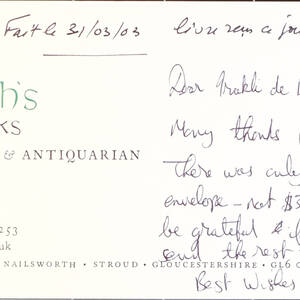 Fait le 31/03/03
livre reçu ce jour
h's
KS
& ANTIQUARIAN
253
uk
NAILSWORTH • STROUD • GLOUCESTERSHIRE • GL6 0
Dear
de
Many thanks
There was only
envelope – not $3
be grateful if
send the rest
Best Wishes